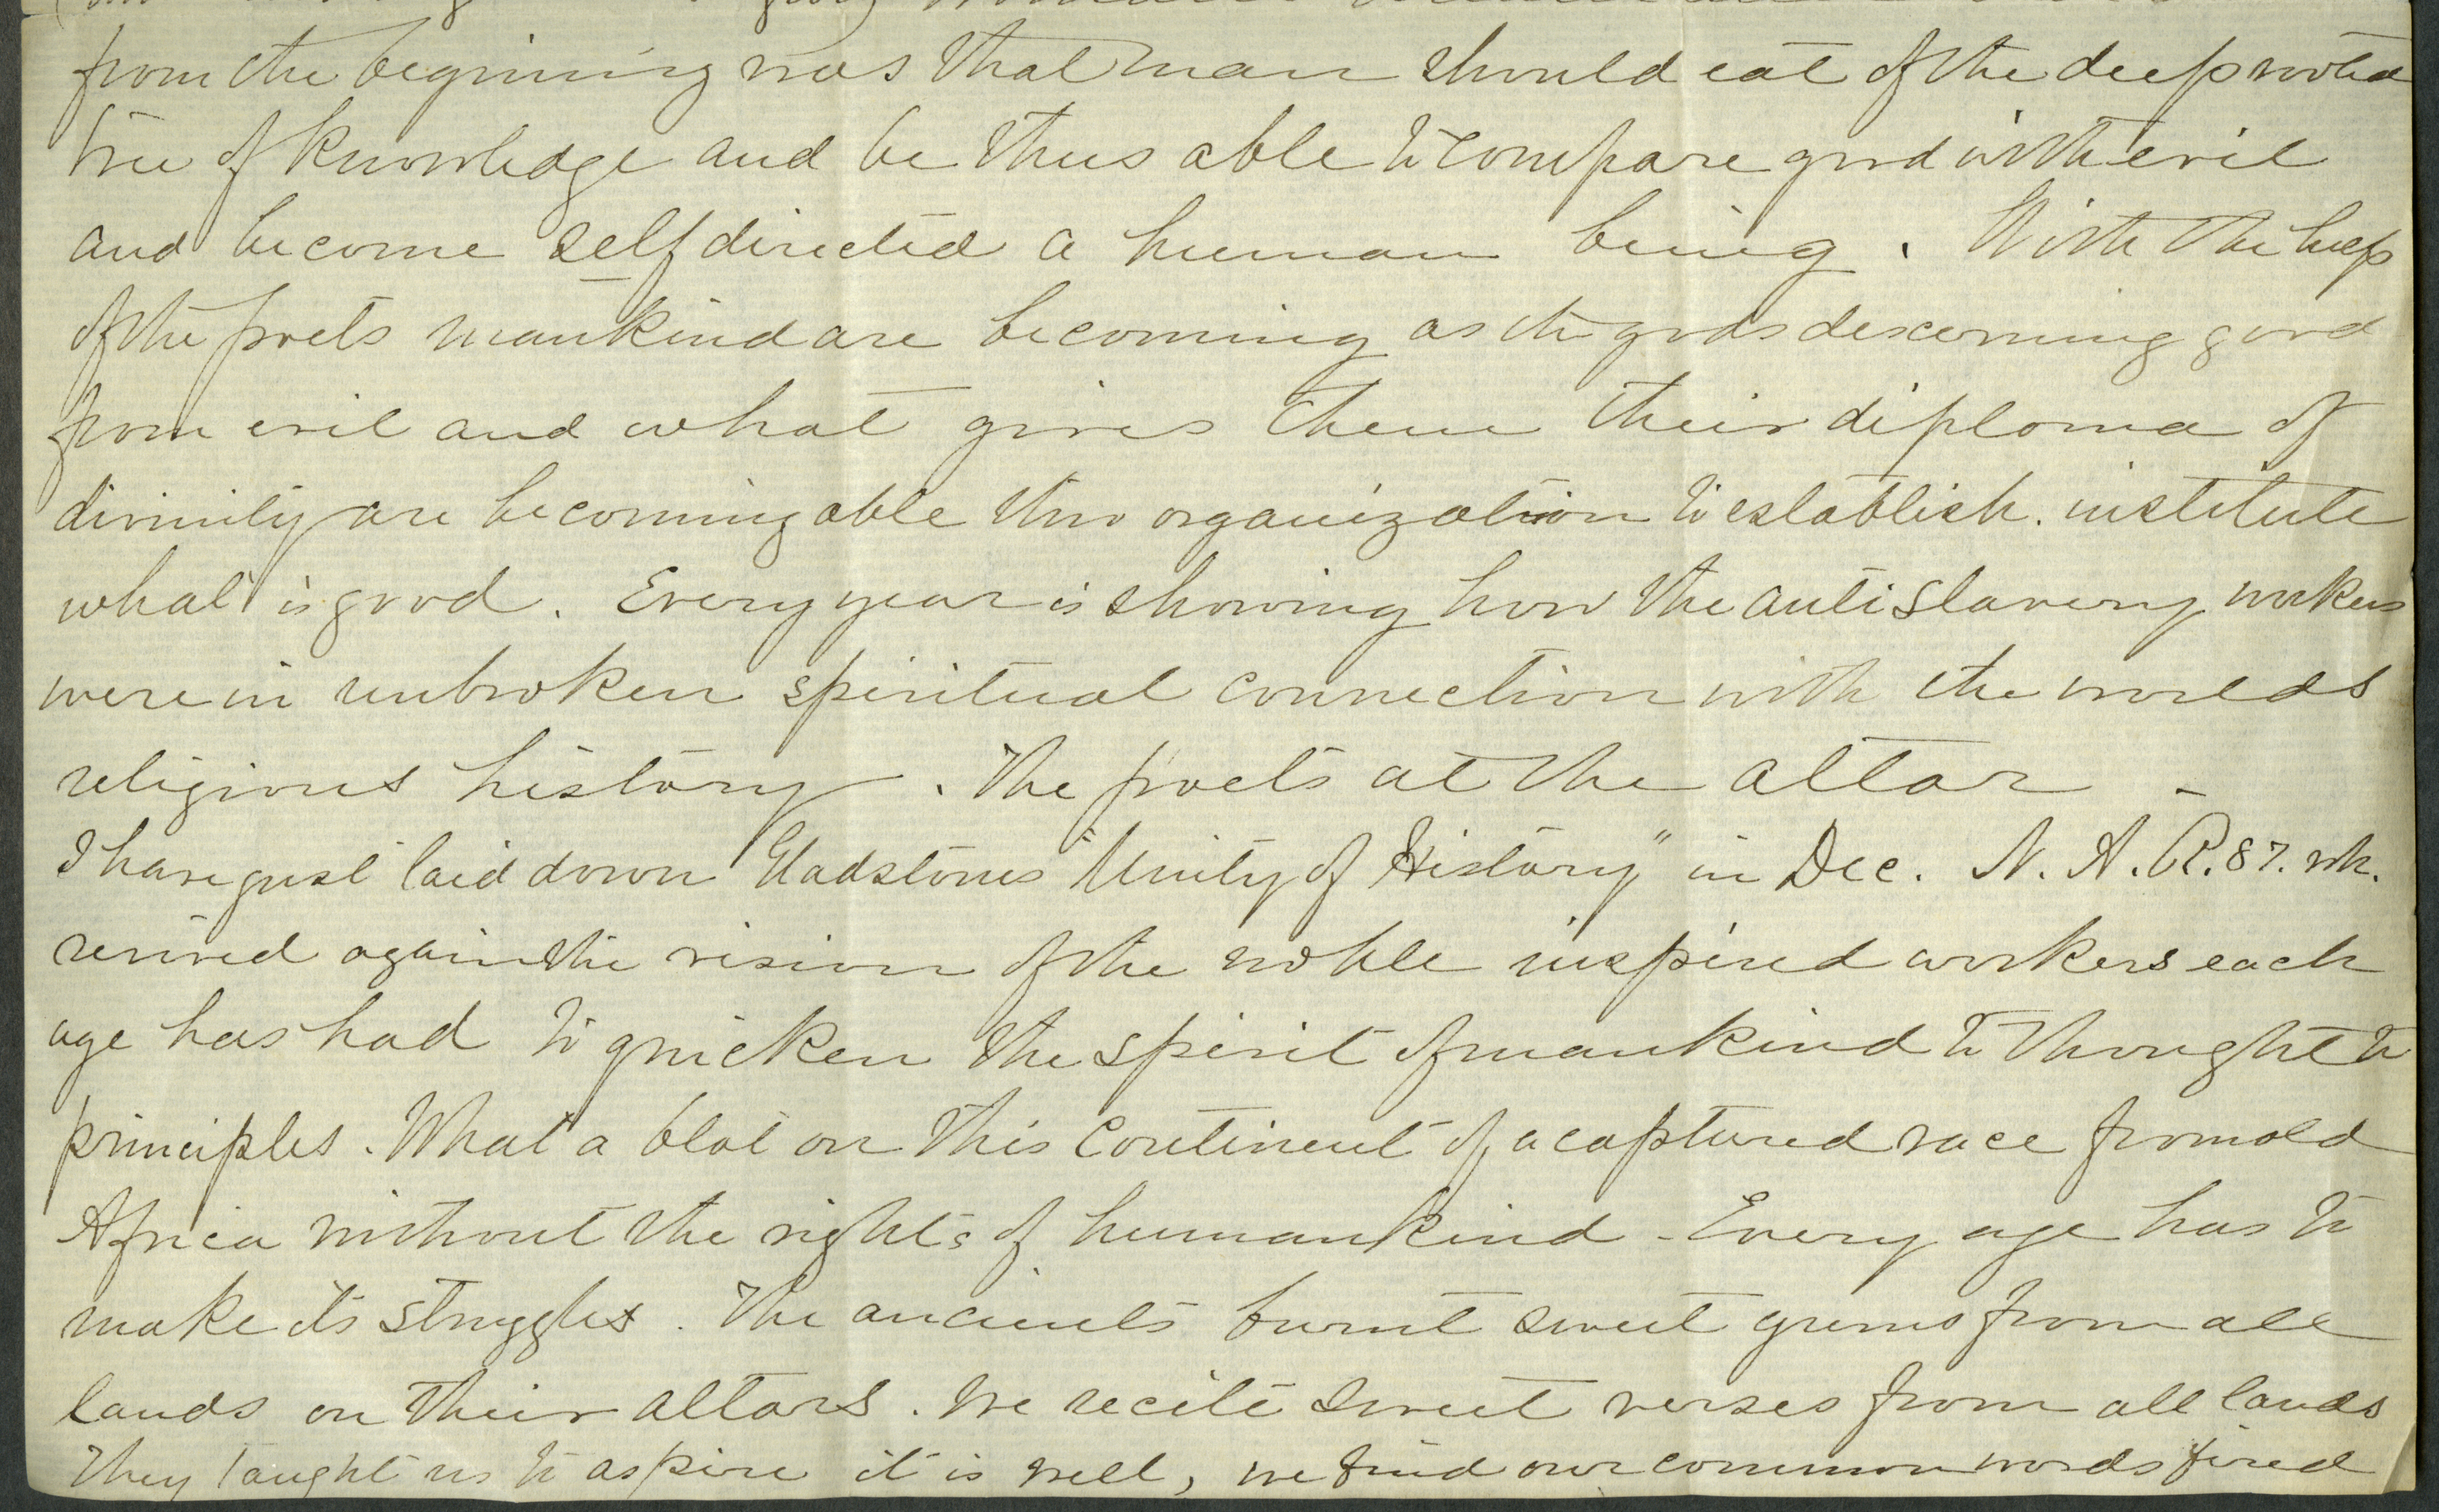 from the beginning was that man should eat of the deep rooted
tree of knowledge and be thus able to compare good with evil
and become self directed a human being. With the help
of the poets mankind are becoming as the gods descerning good
from evil and what gives them their diploma of
divinity are becoming able thro organization to establish. institute
what is good. Every year is showing how the anti slavery workers
were in unbroken spiritual connection with the worlds
religious history. The poets at the altar -
I have just laid down Gladstones "Unity of History" in Dec. N. A. R. 87. wh.
revived again the vision of the noble inspired workers each
age has had to quicken the spirit of mankind to thought to
principles. What a blot on this continent of a captured race from old
Africa without the rights of humankind - Every age has to
make its struggles. The ancients burnt sweet gums from all
lands on their altars. We recite sweet verses from all lands
They taught us to aspire it is well, we find our common words fired